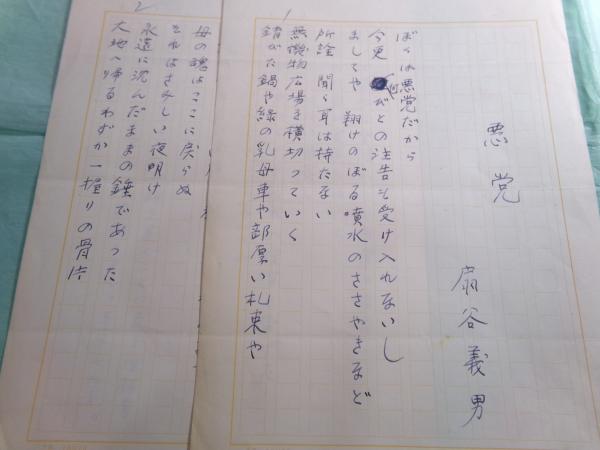 1
悪党
扇谷義男
ぼくは悪党だから
今更 何がとの注告も受け入れないし
ましてや 翔けのぼる噴水のささやきなど
所詮 聞く耳は持たない
無機物広場を横切っていく
錆びた鍋や緑の乳母車や部厚い札束や
2
母の魂はここに戻らぬ
それはさみしい夜明け
永遠に沈んだままの錘であった
大地へ帰るわずか一握りの骨片